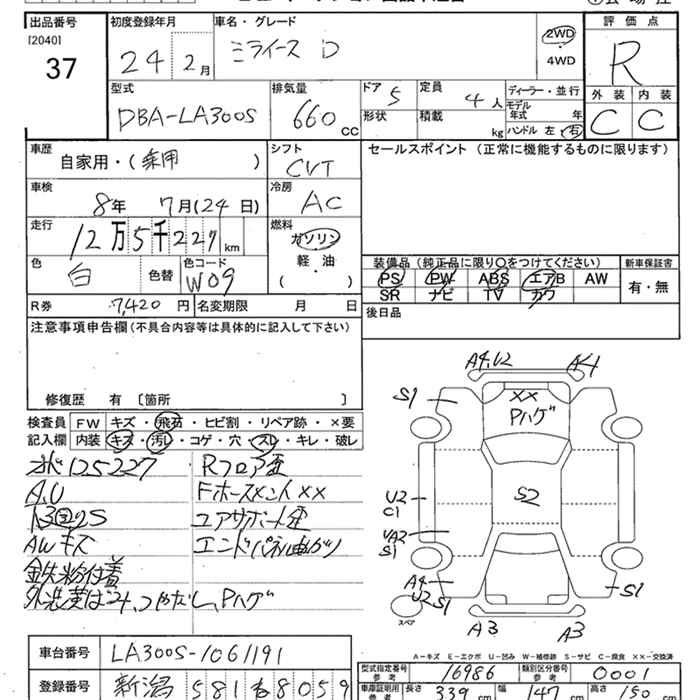 出品番号 初度登録年月 車名・グレード 評価点
[2040]
37 24 2月 ミライース D 2WD ・ 4WD R
型式 排気量 ドア 定員 ディーラー・並行 外装 内装
DBA-LA300S 660cc 5 4人 モデル年式 年 C C
形状 積載 kg ハンドル 左・右
車歴 シフト セールスポイント (正常に機能するものに限ります)
自家用・(乗用) CVT
車検 冷房
8年 7月(24日) AC
走行 燃料
12万5千227km ガソリン
軽・油
( ・ )
色 色替 色コード 装備品 (純正品に限り○をつけてください) 新車保証書
白 W09 PS PW ABS エアB AW 有・無
SR ナビ TV カワ
R券 7,420円 名変期限 月 日 後日品
注意事項申告欄(不具合内容等は具体的に記入して下さい)
修復歴 有 [箇所 ]
検査員 FW キズ・飛石・ヒビ割・リペア跡・×要
記入欄 内装 キズ・汚レ・コゲ・穴・スレ・キレ・破レ
125227 Rフロア歪
A.U
AWキズ エンドパネル曲がり
鉄粉付着
Pハゲ
A4,U2 A4
S1 XX
Pハゲ
U2 S2
C1
S1
A4
U2 S1 S1
スペア
A3 A3
A-キズ E-エクボ U-凹み W-補修跡 S-サビ C-腐食 XX-交換済
車台番号 LA300S-1061191
型式指定番号 参考 16986 類別区分番号 参考 0001
登録番号 新潟 581 8059
車庫証明用 参考 長さ 339cm 幅 147cm 高さ 150cm